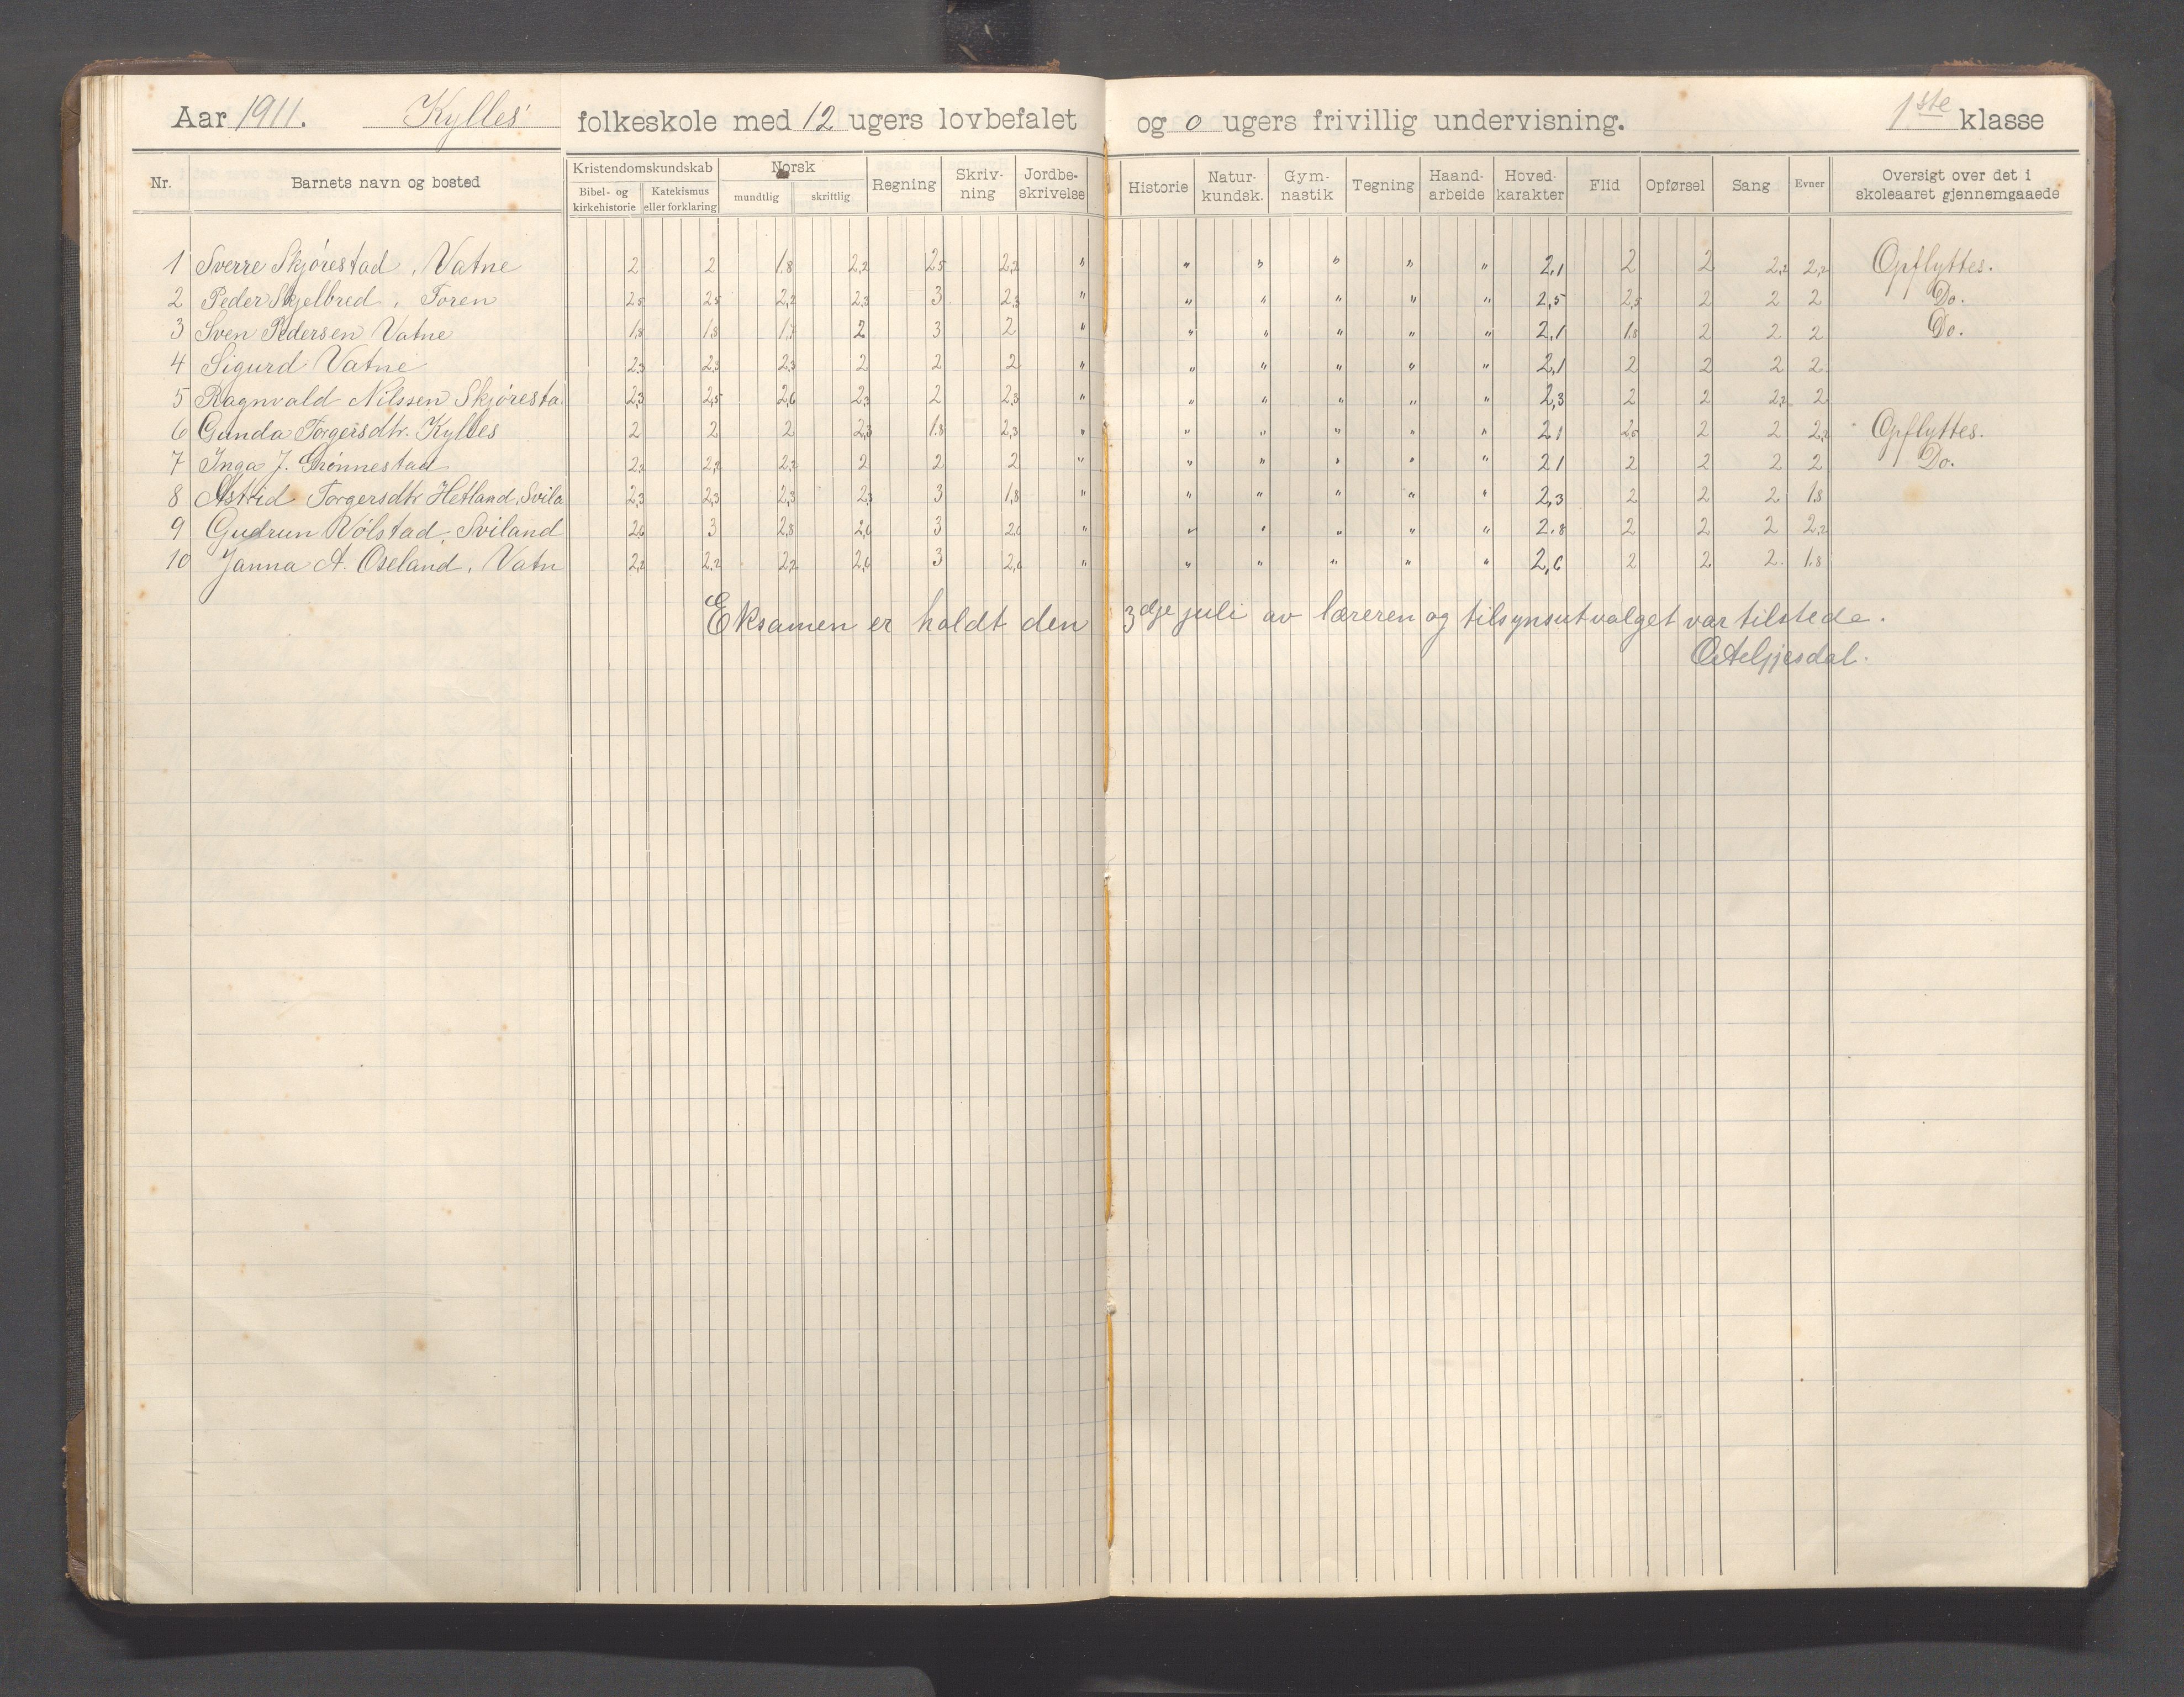 Aar 1911. Kylles folkeskole med 12 ugers lovbefalet og 0 ugers frivillig undervisning. 1ste klasse
Nr. Barnets navn og bosted Kristendomskundskab Bibel- og kirkehistorie Katekismus eller forklaring Norsk mundtlig skriftlig Regning Skriv-ning Jordbe-skrivelse Historie Natur-kundsk. Gym-nastik Tegning Haand-arbeide Hoved-karakter Flid Opførsel Sang Evner Oversigt over det i skoleaaret gjennemgaaede
1 Sverre Skjørestad, Vatne 2 2 1.8 2,2 2,5 2,2 " " " " " " 2,1 2 2 2,2 2,2 Opflyttes.
2 Peder Skjelbred, Foren 2,5 2,5 2,2 2,3 3 2,3 " " " " " " 2,5 2,5 2 2 2 Do.
3 Sven Pedersen Vatne 1,8 1,8 1,7 2 3 2 " " " " " " 2,1 1,8 2 2 2 Do.
4 Sigurd Vatne 2,3 2,3 2,3 2 2 2 " " " " " " 2,1 2 2 2 2
5 Ragnvald Nilssen Skjøresta 2,3 2,5 2,6 2,3 2 2,3 " " " " " " 2,3 2 2 2,2 2
6 Gunda Torgersdtr. Kylles 2 2 2 2,3 1.8 2,3 " " " " " " 2,1 2,5 2 2 2,2 Opflyttes.
7 Inga J. Grønnestad 2,2 2,2 2,2 2 2 2 " " " " " " 2,1 2 2 2 2 Do.
8 Astrid Torgersdtr Hetland, Svila 2,3 2,3 2,3 2,3 3 1,8 " " " " " " 2,3 2 2 2 1.8
9 Gudrun Vølstad, Sviland 2,6 3 2,8 2,6 3 2,6 " " " " " " 2.8 2 2 2 2,2
10 Janna A. Oseland, Vatn 2,2 2,2 2,2 2,6 3 2,6 " " " " " " 2,6 2 2 2. 1.8
Eksamen er holdt den 3dje juli av læreren og tilsynsutvalget var tilstede.